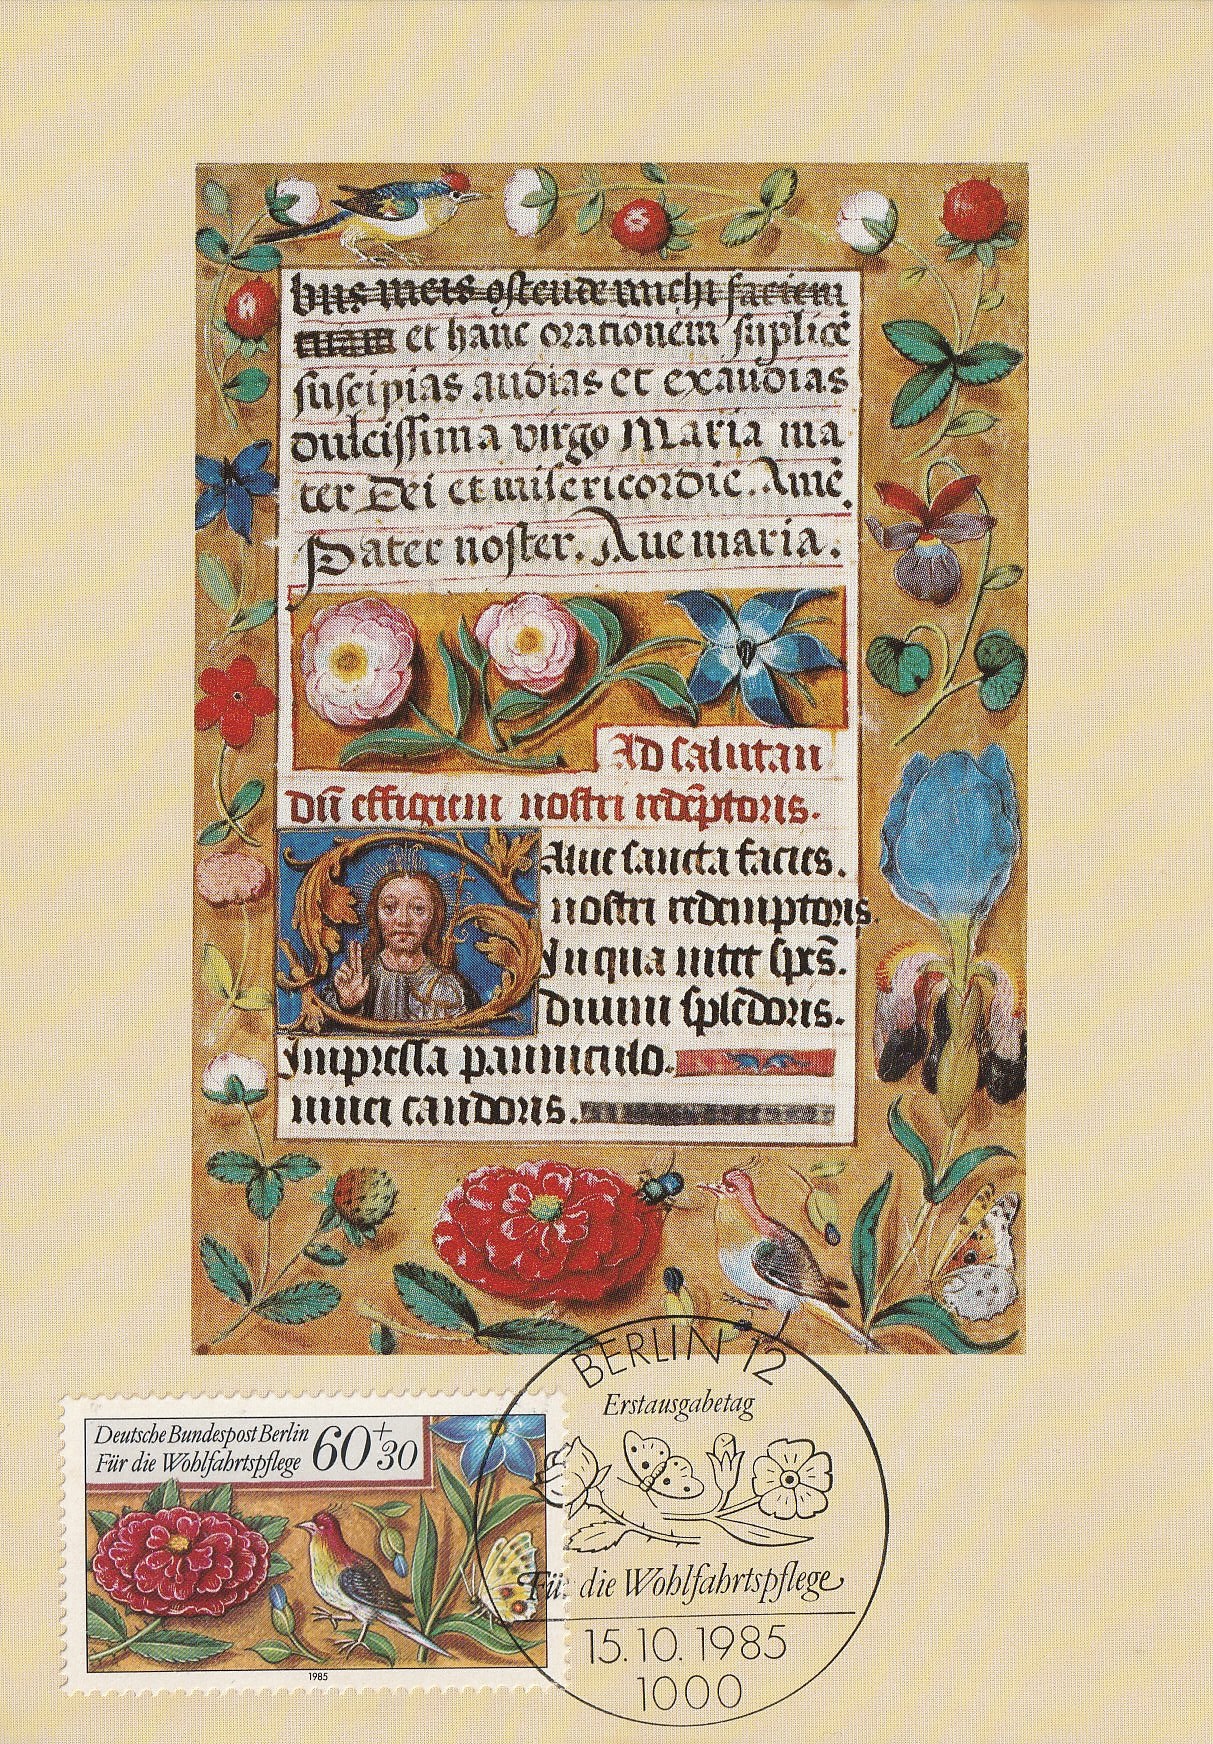 bus meis ostende michi faciem
tuam et hanc orationem suplicē
suscipias audias et exaudias
dulcissima virgo Maria ma
ter Dei et misericordie. Amē.
Pater noster. Aue maria.
Ad salutan
dū effigiem nostri redēptoris.
Aue sancta facies.
nostri redemptoris.
In qua nitet spēs.
Diuini splēdoris.
Impressa panniculo.
niuei candoris.
BERLIN 12
Erstausgabetag
Deutsche Bundespost Berlin
Für die Wohlfahrtspflege
60+30
Für die Wohlfahrtspflege
15.10.1985
1000
1985